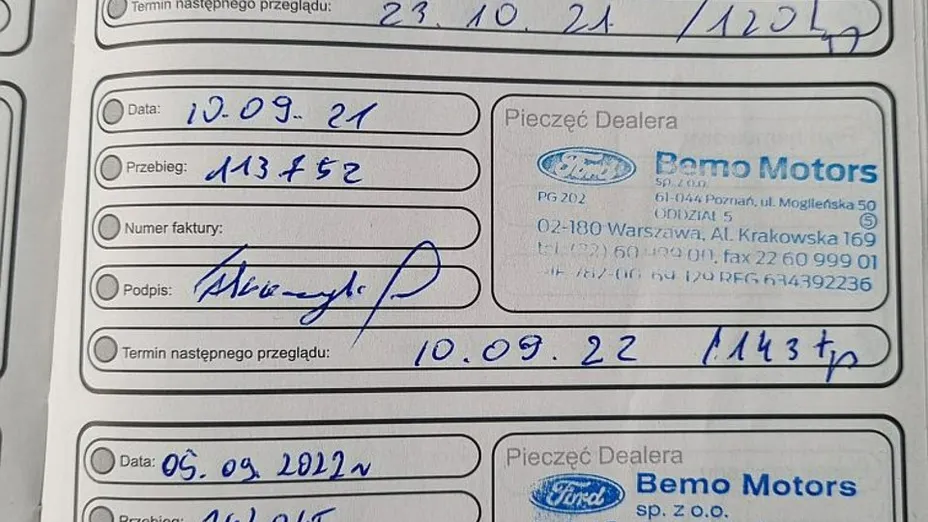 Termin następnego przeglądu: 23.10.21 /120
Data: 10.09.21
Przebieg: 113752
Numer faktury:
Podpis:
Termin następnego przeglądu: 10.09.22 /143
Pieczęć Dealera
Ford Bemo Motors
sp. z o.o.
PG 202 61-044 Poznań, ul. Mogileńska 50
ODDZIAŁ 5 5
02-180 Warszawa, Al. Krakowska 169
fax 22 60 999 01
634392236
Data: 05.09.2022
Przebieg:
Pieczęć Dealera
Ford Bemo Motors
sp. z o.o.